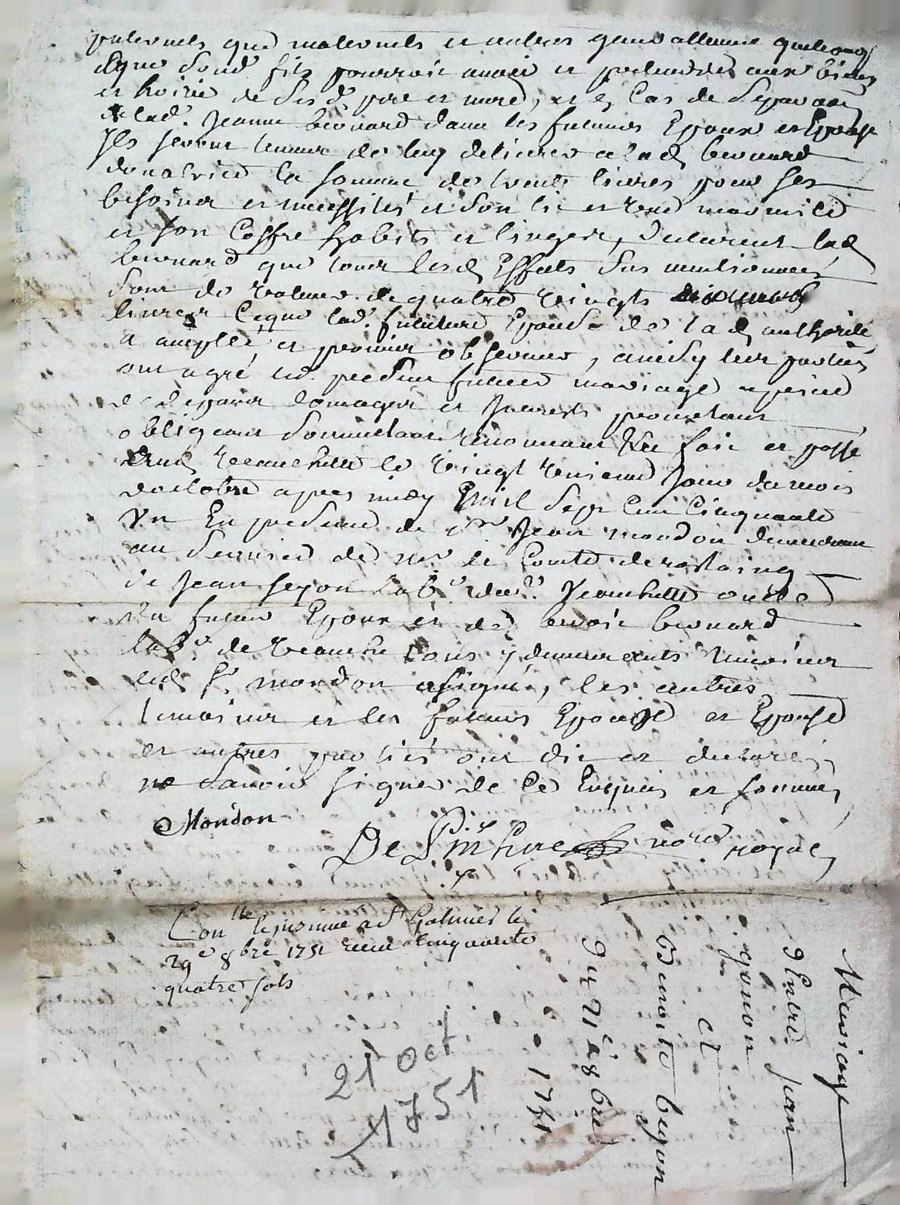 paternels que maternels et autres generallement quelconq
que sond. fils pourroit avoir et pretendre aux biens
et hoirie de sesd. pere et mere, et en cas de separaon
de lad. Jeanne bernard dans les futurs Epoux et Epouse
Ils seront tenus de luy delivrer a lad. bernard
donatrice la somme de trente livres pour ses
besoins et necessités et son lit et
et son Coffre habits et linges, declarent lad.
bernard que tous lesd. Effets sus mentionnés
sont de valeur de quatre vingts
livres Ce que lad. future Epouse de lad. authorité
a accepté et promis observer, ainsy leur parties
ont agré led. present futur mariage a peine
de depens domages et Interets
obligeant soumettant renonceant Fait et passé
aud. Veauchette le vingt unieme Jour du mois
doctobre apres midy mil Sept Cent Cinquante
Un En presence de sr. Jean mondon demeurant
au service de mr. le Comte de rostaing
de Jean seyon lab. dud. Veauchette oncle
du futur Epoux et de benoit bernard
lab. de Veauche tous y demeurants temoins
led. sr. mondon a signé, les autres
temoins et les futurs Epoux et Epouse
et autres parties ont dit et declaré
ne savoir signer de Ce Enquis et sommés
Mondon
notre royal
Conlle a st Galmier le
29e 8bre 1751 Cinquante
quatre sols
21 oct.
1751
Mariage
Entre jean
gonon
et
benoite beyon
Du 21e 8bre
1751